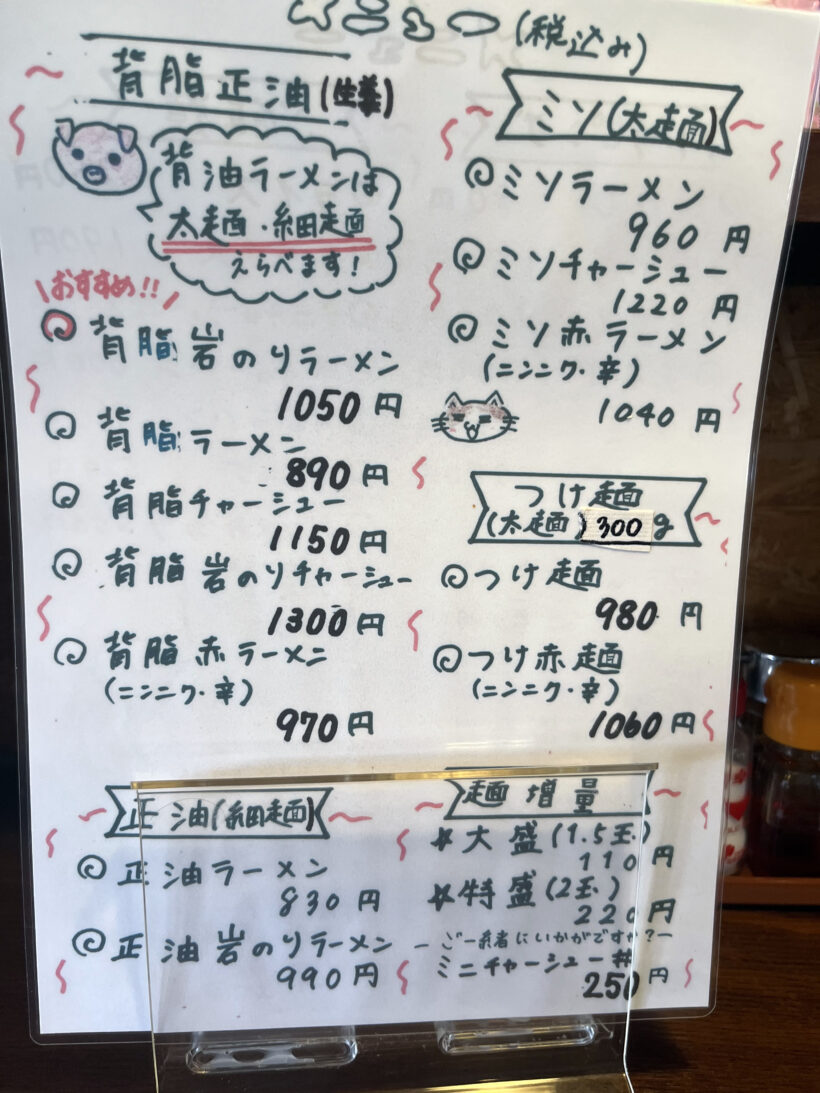 メニュー(税込み)
背脂正油(生姜)
背油ラーメンは
太麺・細麺
えらべます!
おすすめ!!
背脂岩のりラーメン
1050円
背脂ラーメン
890円
背脂チャーシュー
1150円
背脂岩のりチャーシュー
1300円
背脂赤ラーメン
(ニンニク・辛)
970円
正油(細麺)
正油ラーメン
830円
正油岩のりラーメン
990円
ミソ(太麺)
ミソラーメン
960円
ミソチャーシュー
1220円
ミソ赤ラーメン
(ニンニク・辛)
1040円
つけ麺
(太麺)300g
つけ麺
980円
つけ赤麺
(ニンニク・辛)
1060円
麺増量
大盛(1.5玉)
110円
特盛(2玉)
220円
ー ご一緒にいかがですか? ー
ミニチャーシュー丼
250円